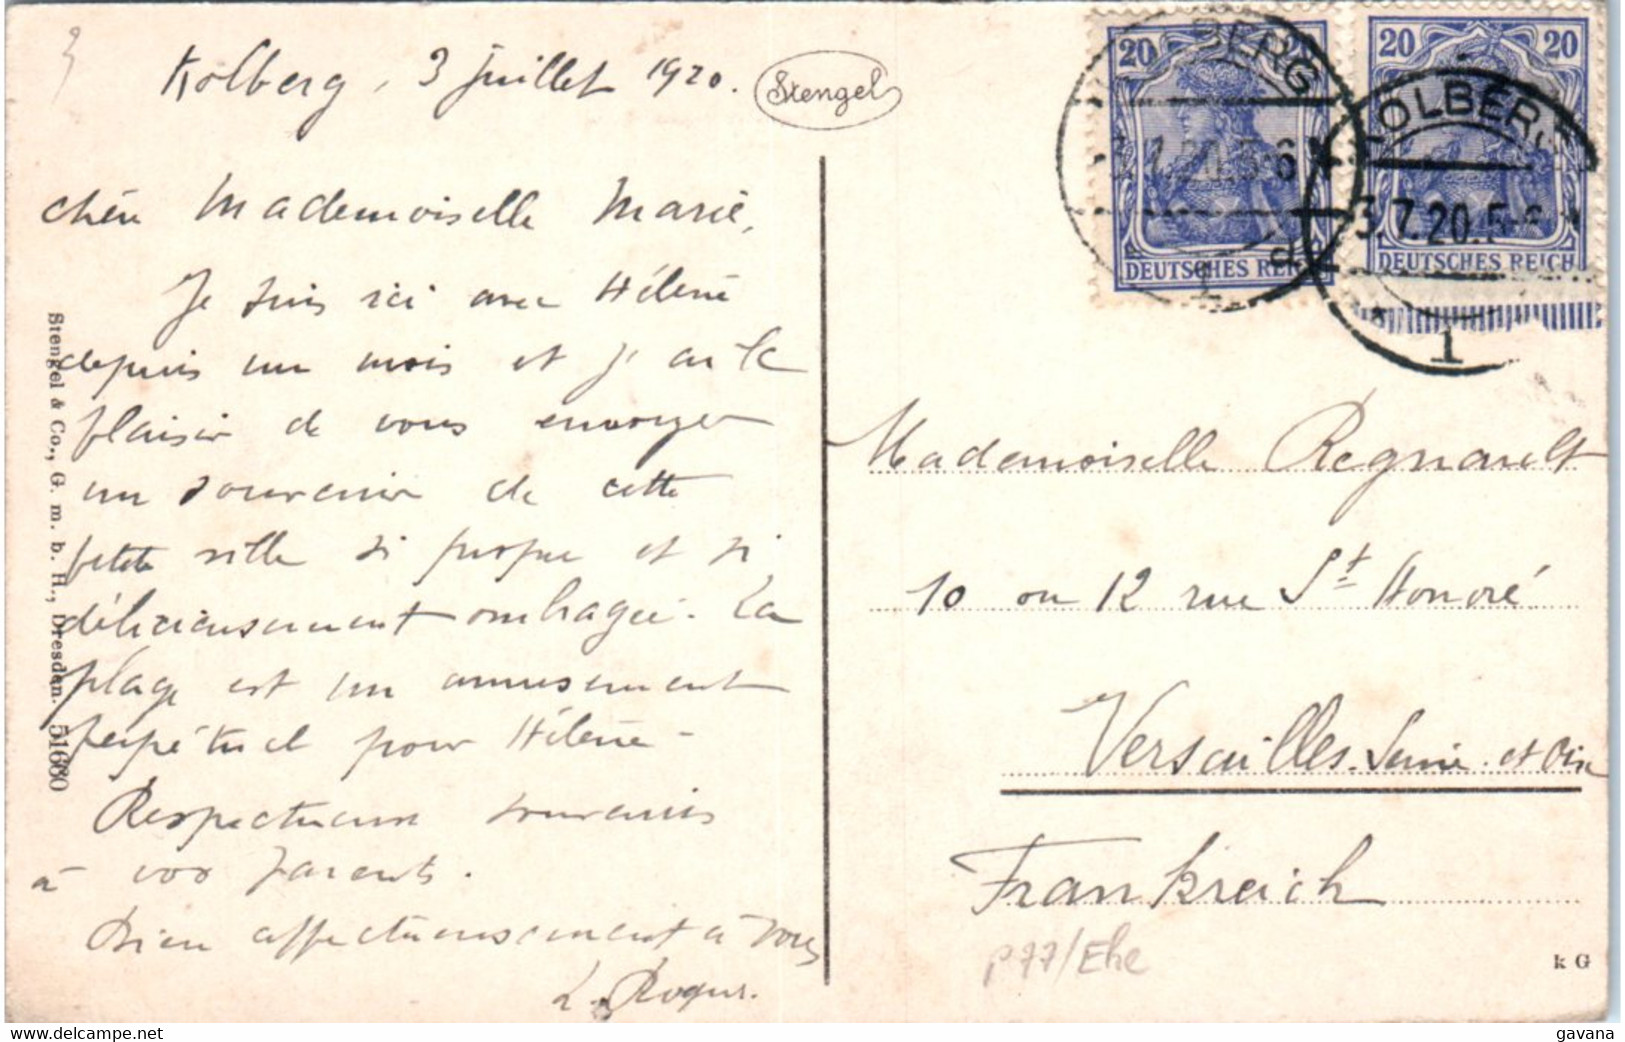 3
Kolberg, 3 juillet 1920.
Stengel
chère Mademoiselle Marie,
Je suis ici avec Hélène
depuis un mois et j'ai le
plaisir de vous envoyer
un souvenir de cette
petite ville si propre et si
délicieusement ombragée. La
plage est un amusement
perpétuel pour Hélène -
Respectueux souvenirs
à vos parents.
Bien affectueusement à vous
L. Roques.
Stengel & Co., G. m. b. H., Dresden. 51680
20 20
DEUTSCHES REICH
BERG
.7.20.5-6
20 20
DEUTSCHES REICH
KOLBERG
3.7.20.5-6
* 1
Mademoiselle Regnault
10 ou 12 rue St Honoré
Versailles. Seine et Oise
Frankreich
P77/Ehe
k G
gavana
www.delcampe.net